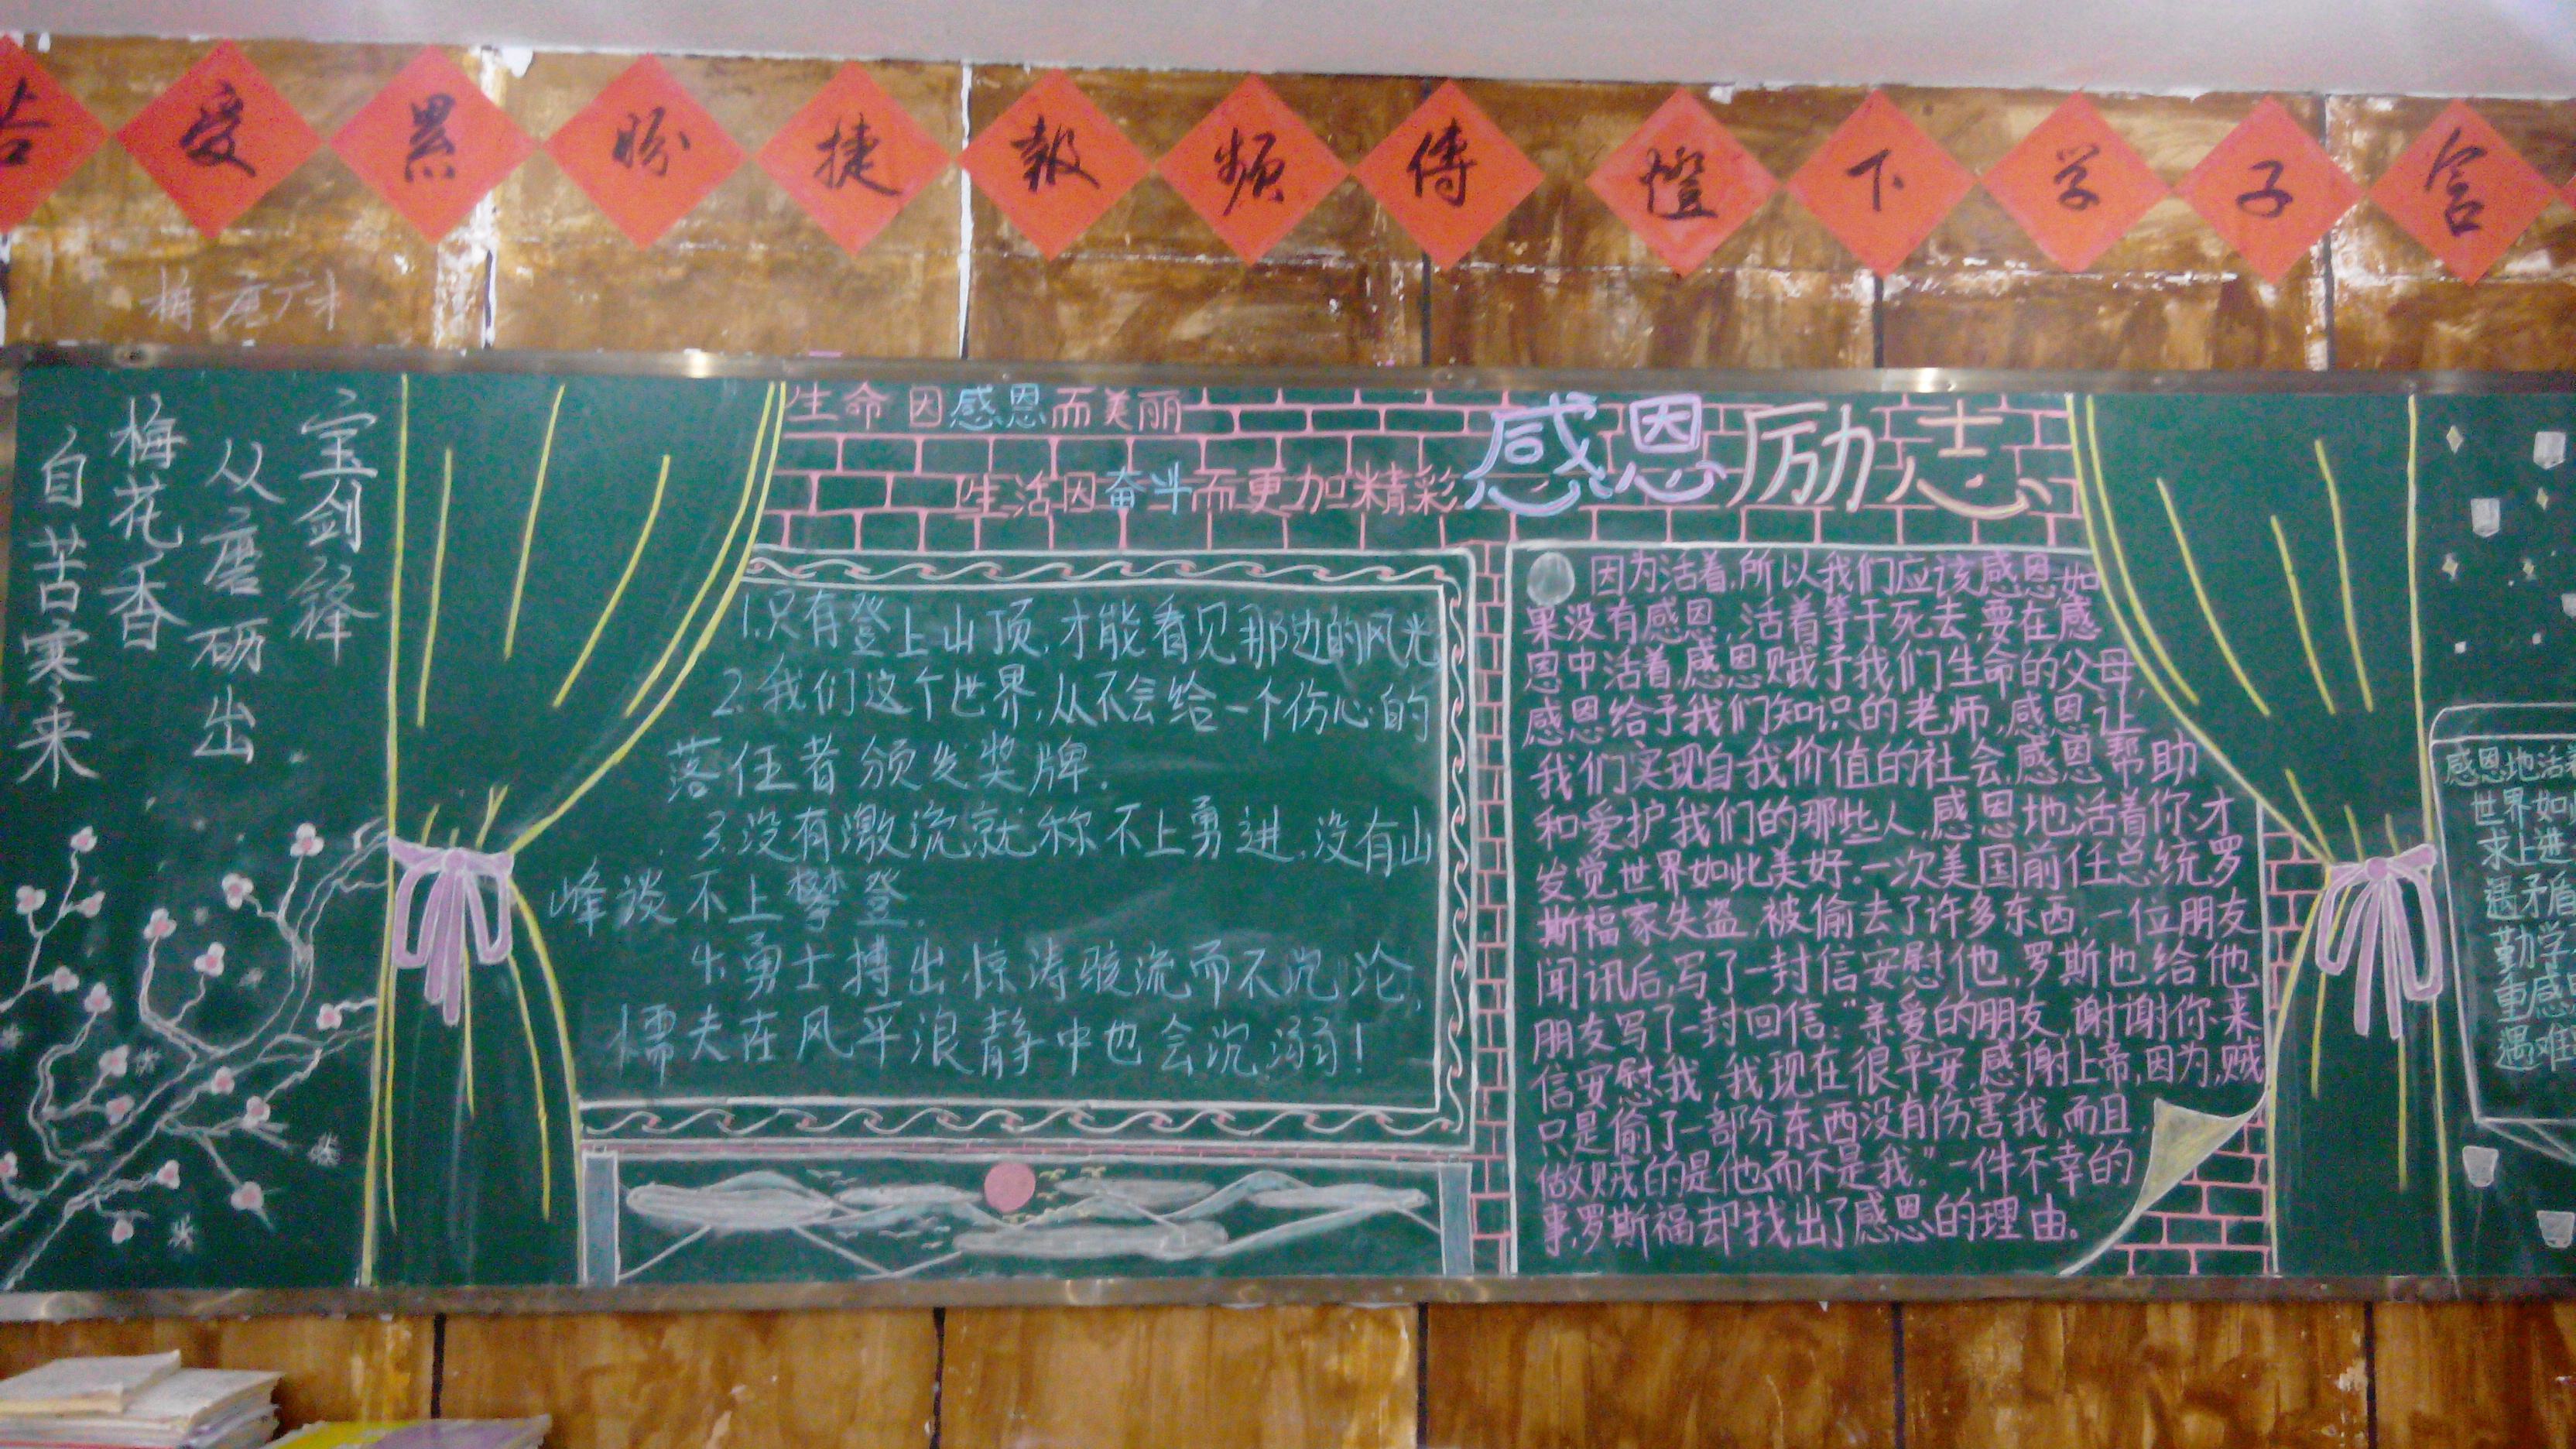 苦受累盼捷報頻傳燈下学子含
宝剑锋
从磨砺出
梅花香
自苦寒来
生命因感恩而美丽
生活因奋斗而更加精彩
感恩励志
1.只有登上山顶,才能看见那边的风光
2.我们这个世界,从不会给一个伤心的
落伍者颁发奖牌.
3.没有激流就称不上勇进,没有山
峰谈不上攀登.
4.勇士搏出惊涛骇流而不沉沦,
懦夫在风平浪静中也会沉溺!
因为活着,所以我们应该感恩如
果没有感恩,活着等于死去,要在感
恩中活着,感恩赋予我们生命的父母,
感恩给予我们知识的老师,感恩让
我们实现自我价值的社会,感恩帮助
和爱护我们的那些人,感恩地活着你才
发觉世界如此美好.一次美国前任总统罗
斯福家失盗,被偷去了许多东西,一位朋友
闻讯后,写了一封信安慰他,罗斯也给他
朋友写了一封回信:“亲爱的朋友,谢谢你来
信安慰我,我现在很平安,感谢上帝,因为,贼
只是偷了一部分东西没有伤害我,而且,
做贼的是他而不是我.”一件不幸的
事,罗斯福却找出了感恩的理由.
感恩地活着
世界如
求上进
遇矛盾
勤学
重感
遇难